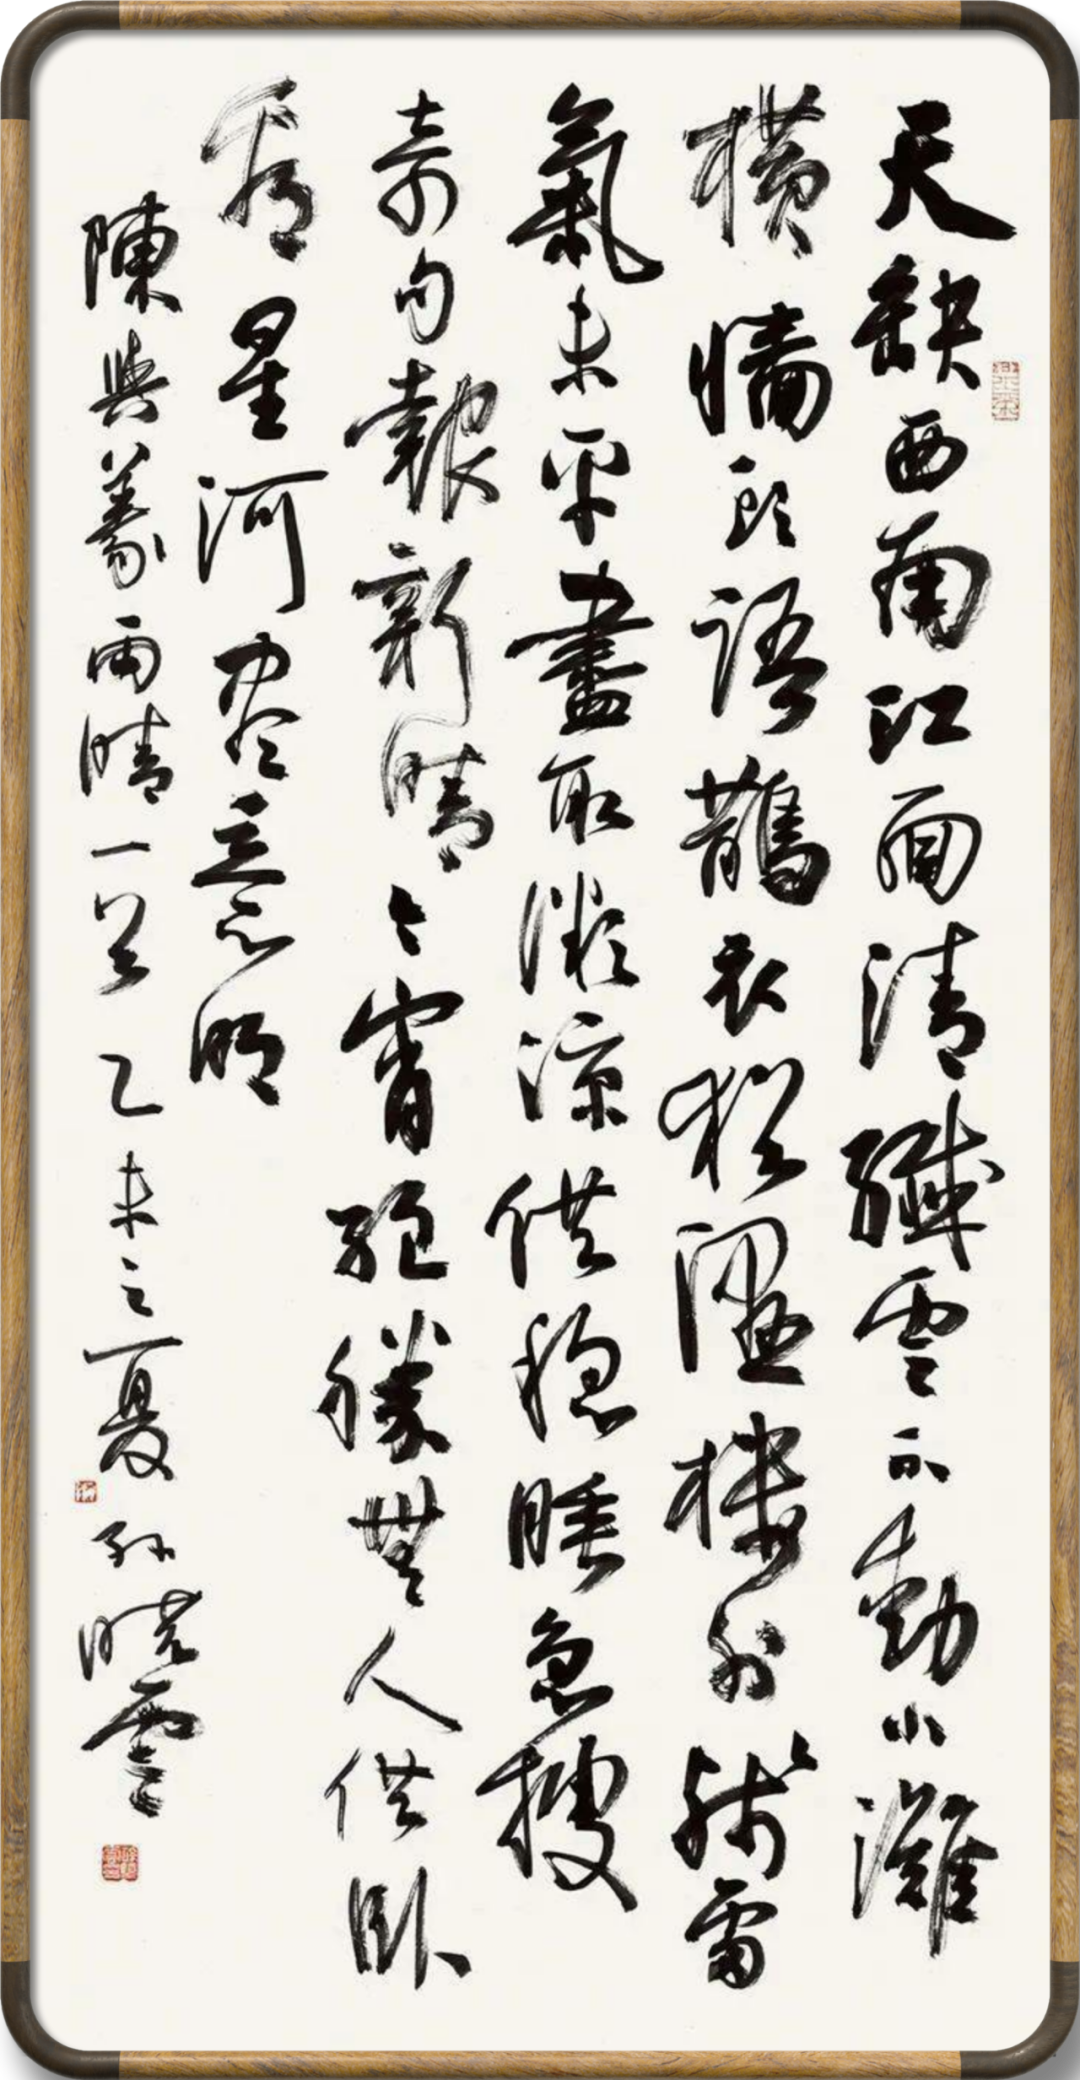 天缺西南江面清纖雲不動小灘
橫牆頭語鵲衣猶溼樓外殘雷
氣未平盡取微涼供穩睡急搜
奇句報新晴〻宵絕勝無人供臥
看星河尽意明
陳與義雨晴一首乙未之夏孫曉雲